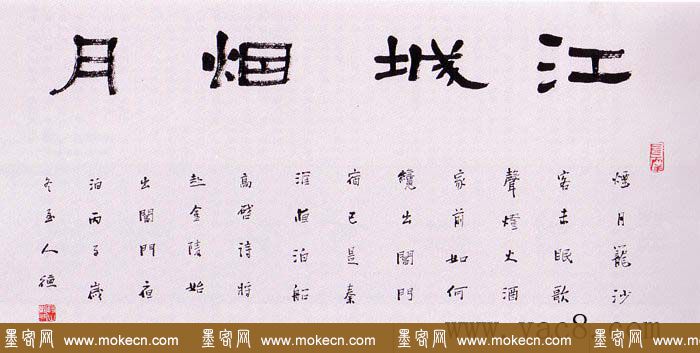 江城烟月
煙月籠沙
客未眠歌
聲燈火酒
家前如何
纔出閶門
宿已是秦
淮夜泊船
高啓詩將
赴金陵始
出閶門夜
泊丙子歲
冬至人德
www.yac8.com
墨客网 www.mokecn.com 墨客网 www.mokecn.com 墨客网 www.mokecn.com 墨客网 www.mokecn.com